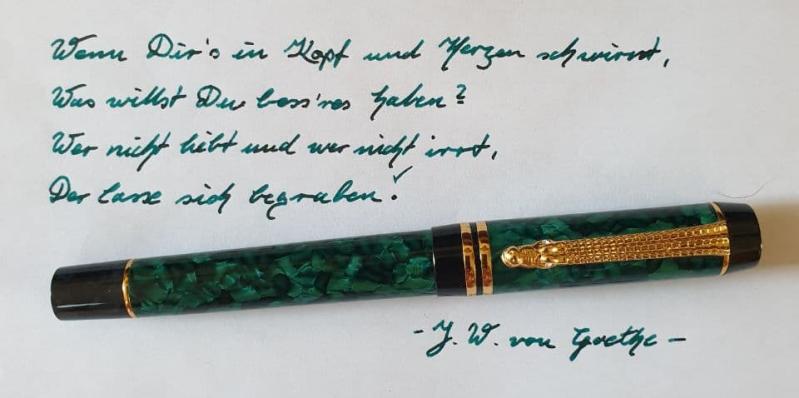 Wenn Dir's in Kopf und Herzen schwirrt,
Was willst Du bess'res haben?
Wer nicht liebt und wer nicht irrt,
Der lasse sich begraben!
- J. W. von Goethe -